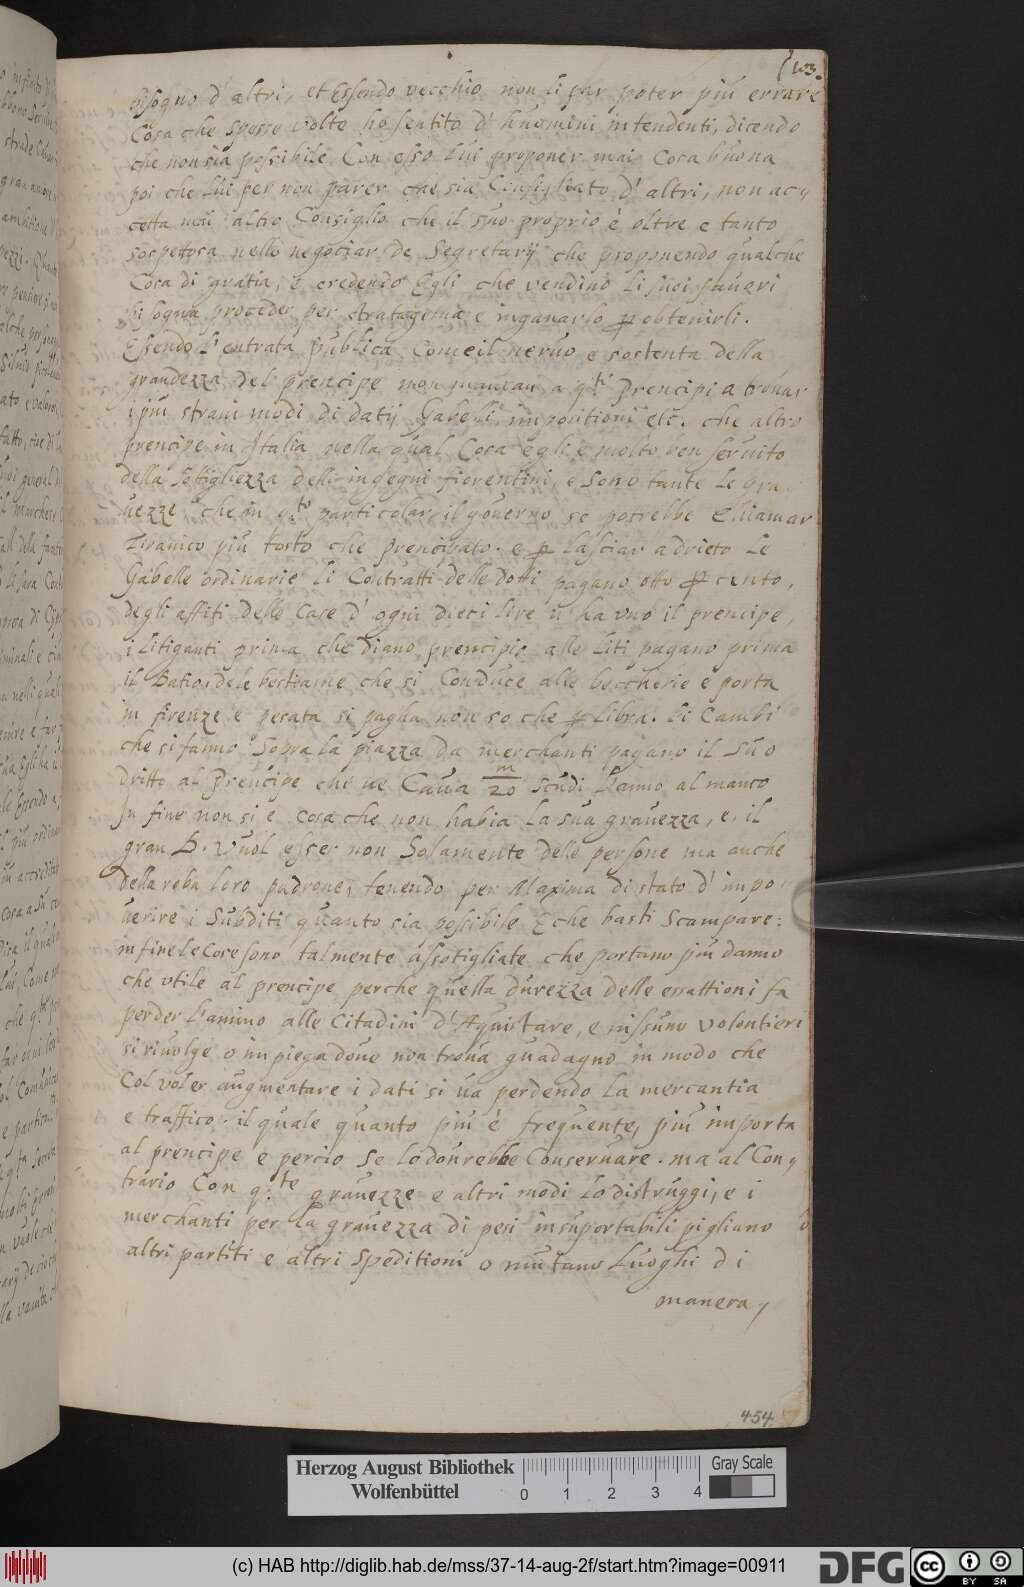 103.
bisogno d' altri, et Essendo vecchio non li par poter piu errare
Cosa che spesse volte ho sentito d' huomini intendenti, dicendo
che non sia possibile Con esso lui proponer mai Cosa buona
poi che lui per non parer che sia Consigliato d' altri, non ac=
cetta mai altro Consiglio che il suo proprio è oltre e tanto
sospettosa nelle negotiar de Segretarij che proponendo qualche
Cosa di gratia, e credendo Egli che vendino li suoi fauori
bisogna proceder per stratagema e inganarlo p obtenirli.
Essendo l' entrata publica Come il neruo e sostenta della
grandezza del prencipe non mancan a q.ti Prencipi a trouar
i piu strani modi di datij Gabelli, impositioni etc. che altro
prencipe in Italia nella qual Cosa egli e molto ben seruito
della sottigliezza delli ingegni fiorentini, e sono tante le gra
uezze che in q.to particolar il gouerno se potrebbe Chiamar
Tiranico piu tosto che prencipato. e p lasciar adrieto le
Gabelle ordinarie li Contratti delle dotti pagano otto p cento,
degli affiti delle Case d' ogni dieci lire ü ha vno il prencipe,
i litiganti prima che diano prencipio alle liti pagano prima
il Datio, dele bestiame che si Conduce alle beccherie e porta
in firenze e pesata si pagha non so che p libra. li Cambi
che si fanno Sopra la piazza da merchanti pagano il suo
dritto al Prencipe che ne Caua m/20 scudi l'anno al manco
In fine non si è cosa che non habia la sua grauezza, e, il
gran D. Vuol esser non Solamente delle persone ma anche
della roba loro padrone, tenendo per Maxima di stato d' impo
uerire i Subditi quanto sia possibile E che basti Scampare:
in fine le Cose sono talmente assotigliate che portano piu danno
che vtile al prencipe perche quella durezza delle essattioni fa
perder l'animo alle Citadini d' Aquistare, e nissuno volontieri
si riuolge o impiega doue non troua guadagno in modo che
Col voler augmentare i dati si va perdendo la mercantia
e traffico. il quale quanto piu è frequente, piu importa
al prencipe e percio se lo dourebbe Conseruare. ma al Con=
trario Con q.te grauezze e altri modi lo distruggi, e i
merchanti per la grauezza di pesi insuportabili pigliano
altri partiti e altri Speditioni o mutano luoghi di
manera,
454
Herzog August Bibliothek
Wolfenbüttel
0 1 2 3 4
Gray Scale
(c) HAB http://diglib.hab.de/mss/37-14-aug-2f/start.htm?image=00911
DFG
cc BY SA